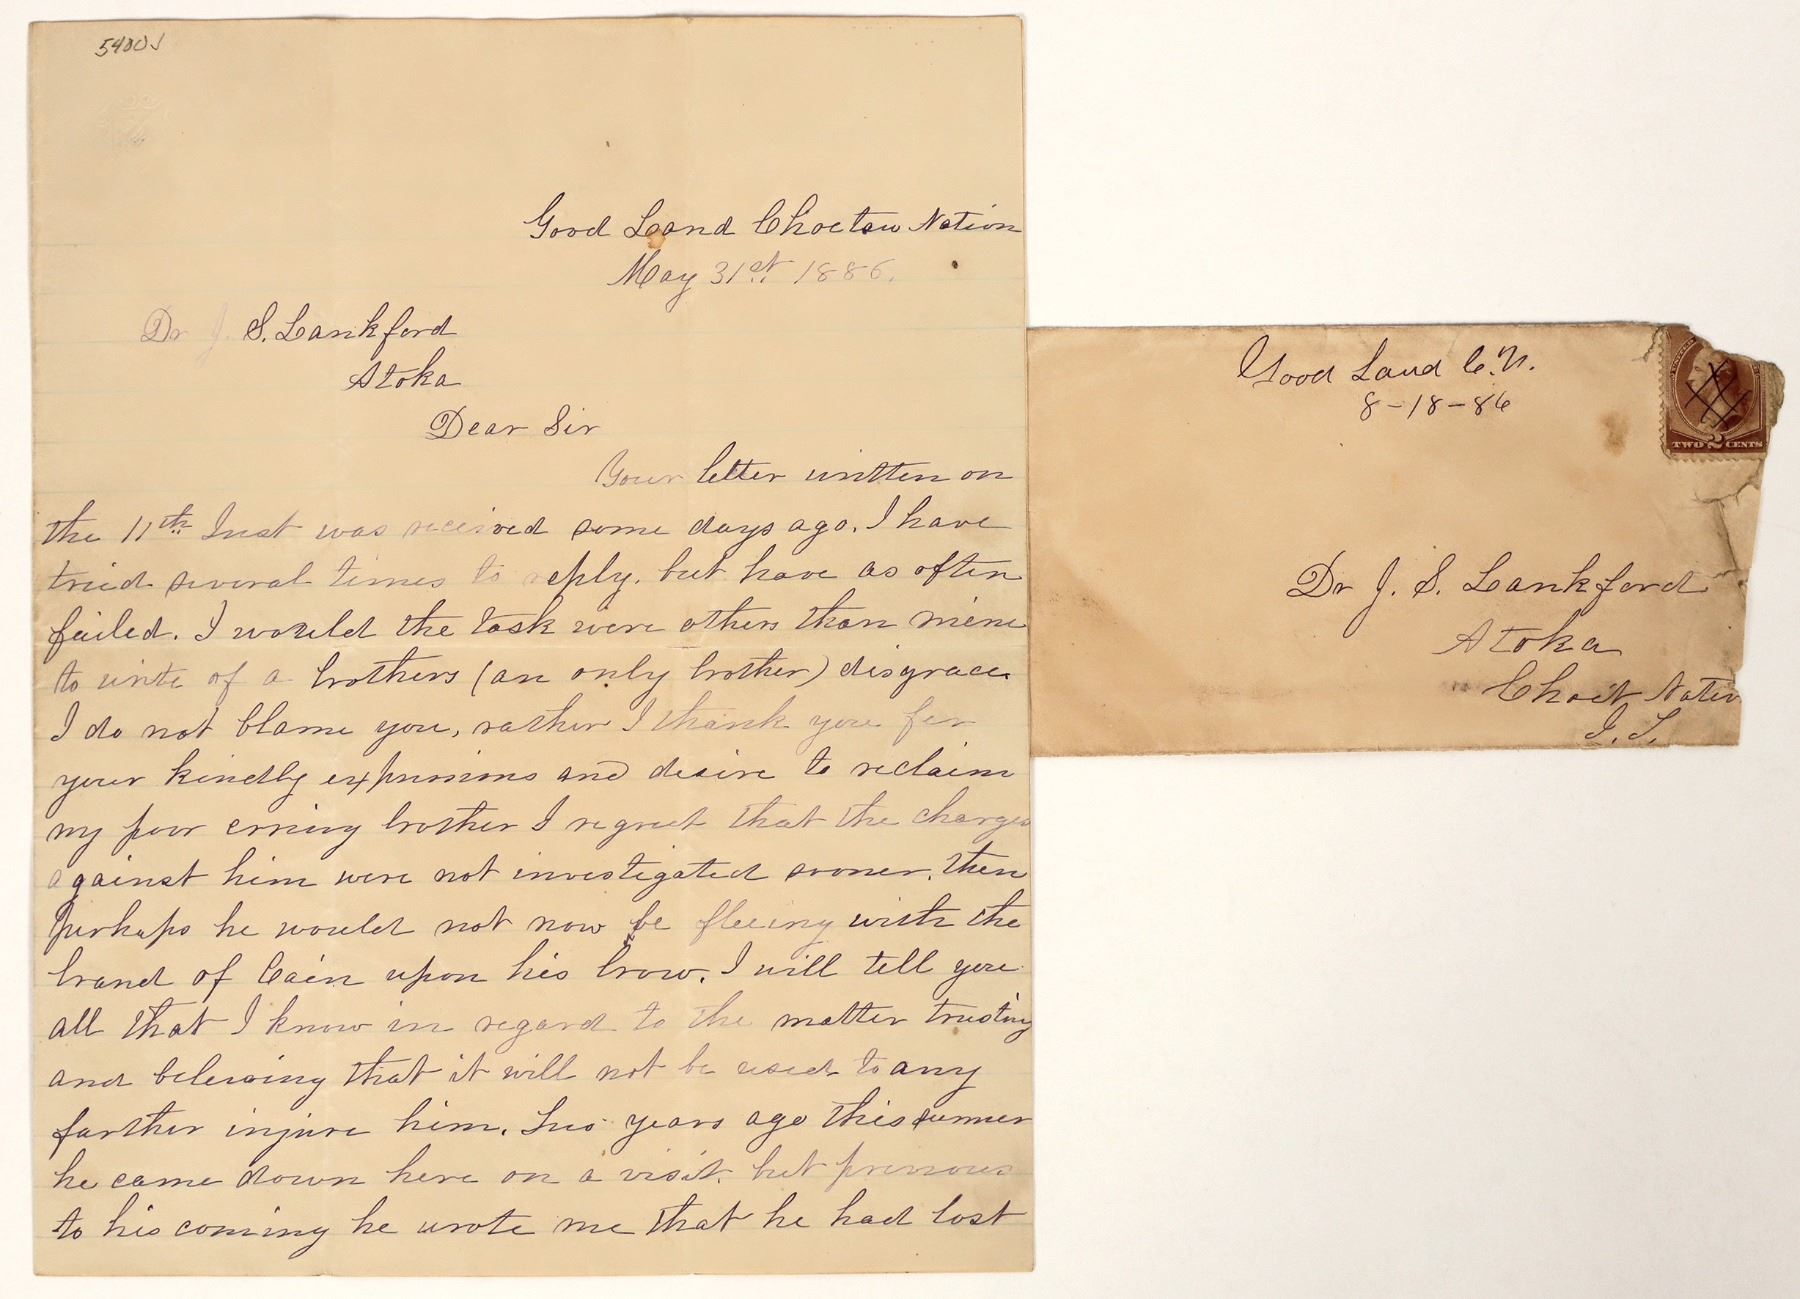 5400J
Good Land Choctaw Nation
May 31st 1886.
Dr J. S. Lankford
Atoka
Dear Sir
Your letter written on
the 11th Inst was received some days ago. I have
tried several times to reply. but have as often
failed. I would the task were others than mine
to write of a brothers (an only brother) disgrace.
I do not blame you, rather I thank you for
your kindly expressions and desire to reclaim
my poor erring brother I regret that the charges
against him were not investigated sooner. then
perhaps he would not now be fleeing with the
brand of Cain upon his brow. I will tell you
all that I know in regard to the matter trusting
and beleiving that it will not be used to any
farther injure him. Two years ago this summer
he came down here on a visit. but previous
to his coming he wrote me that he had lost
Good Land C.N.
8-18-86
TWO 2 CENTS
Dr J. S. Lankford
Atoka
Choct Nation
I. T.